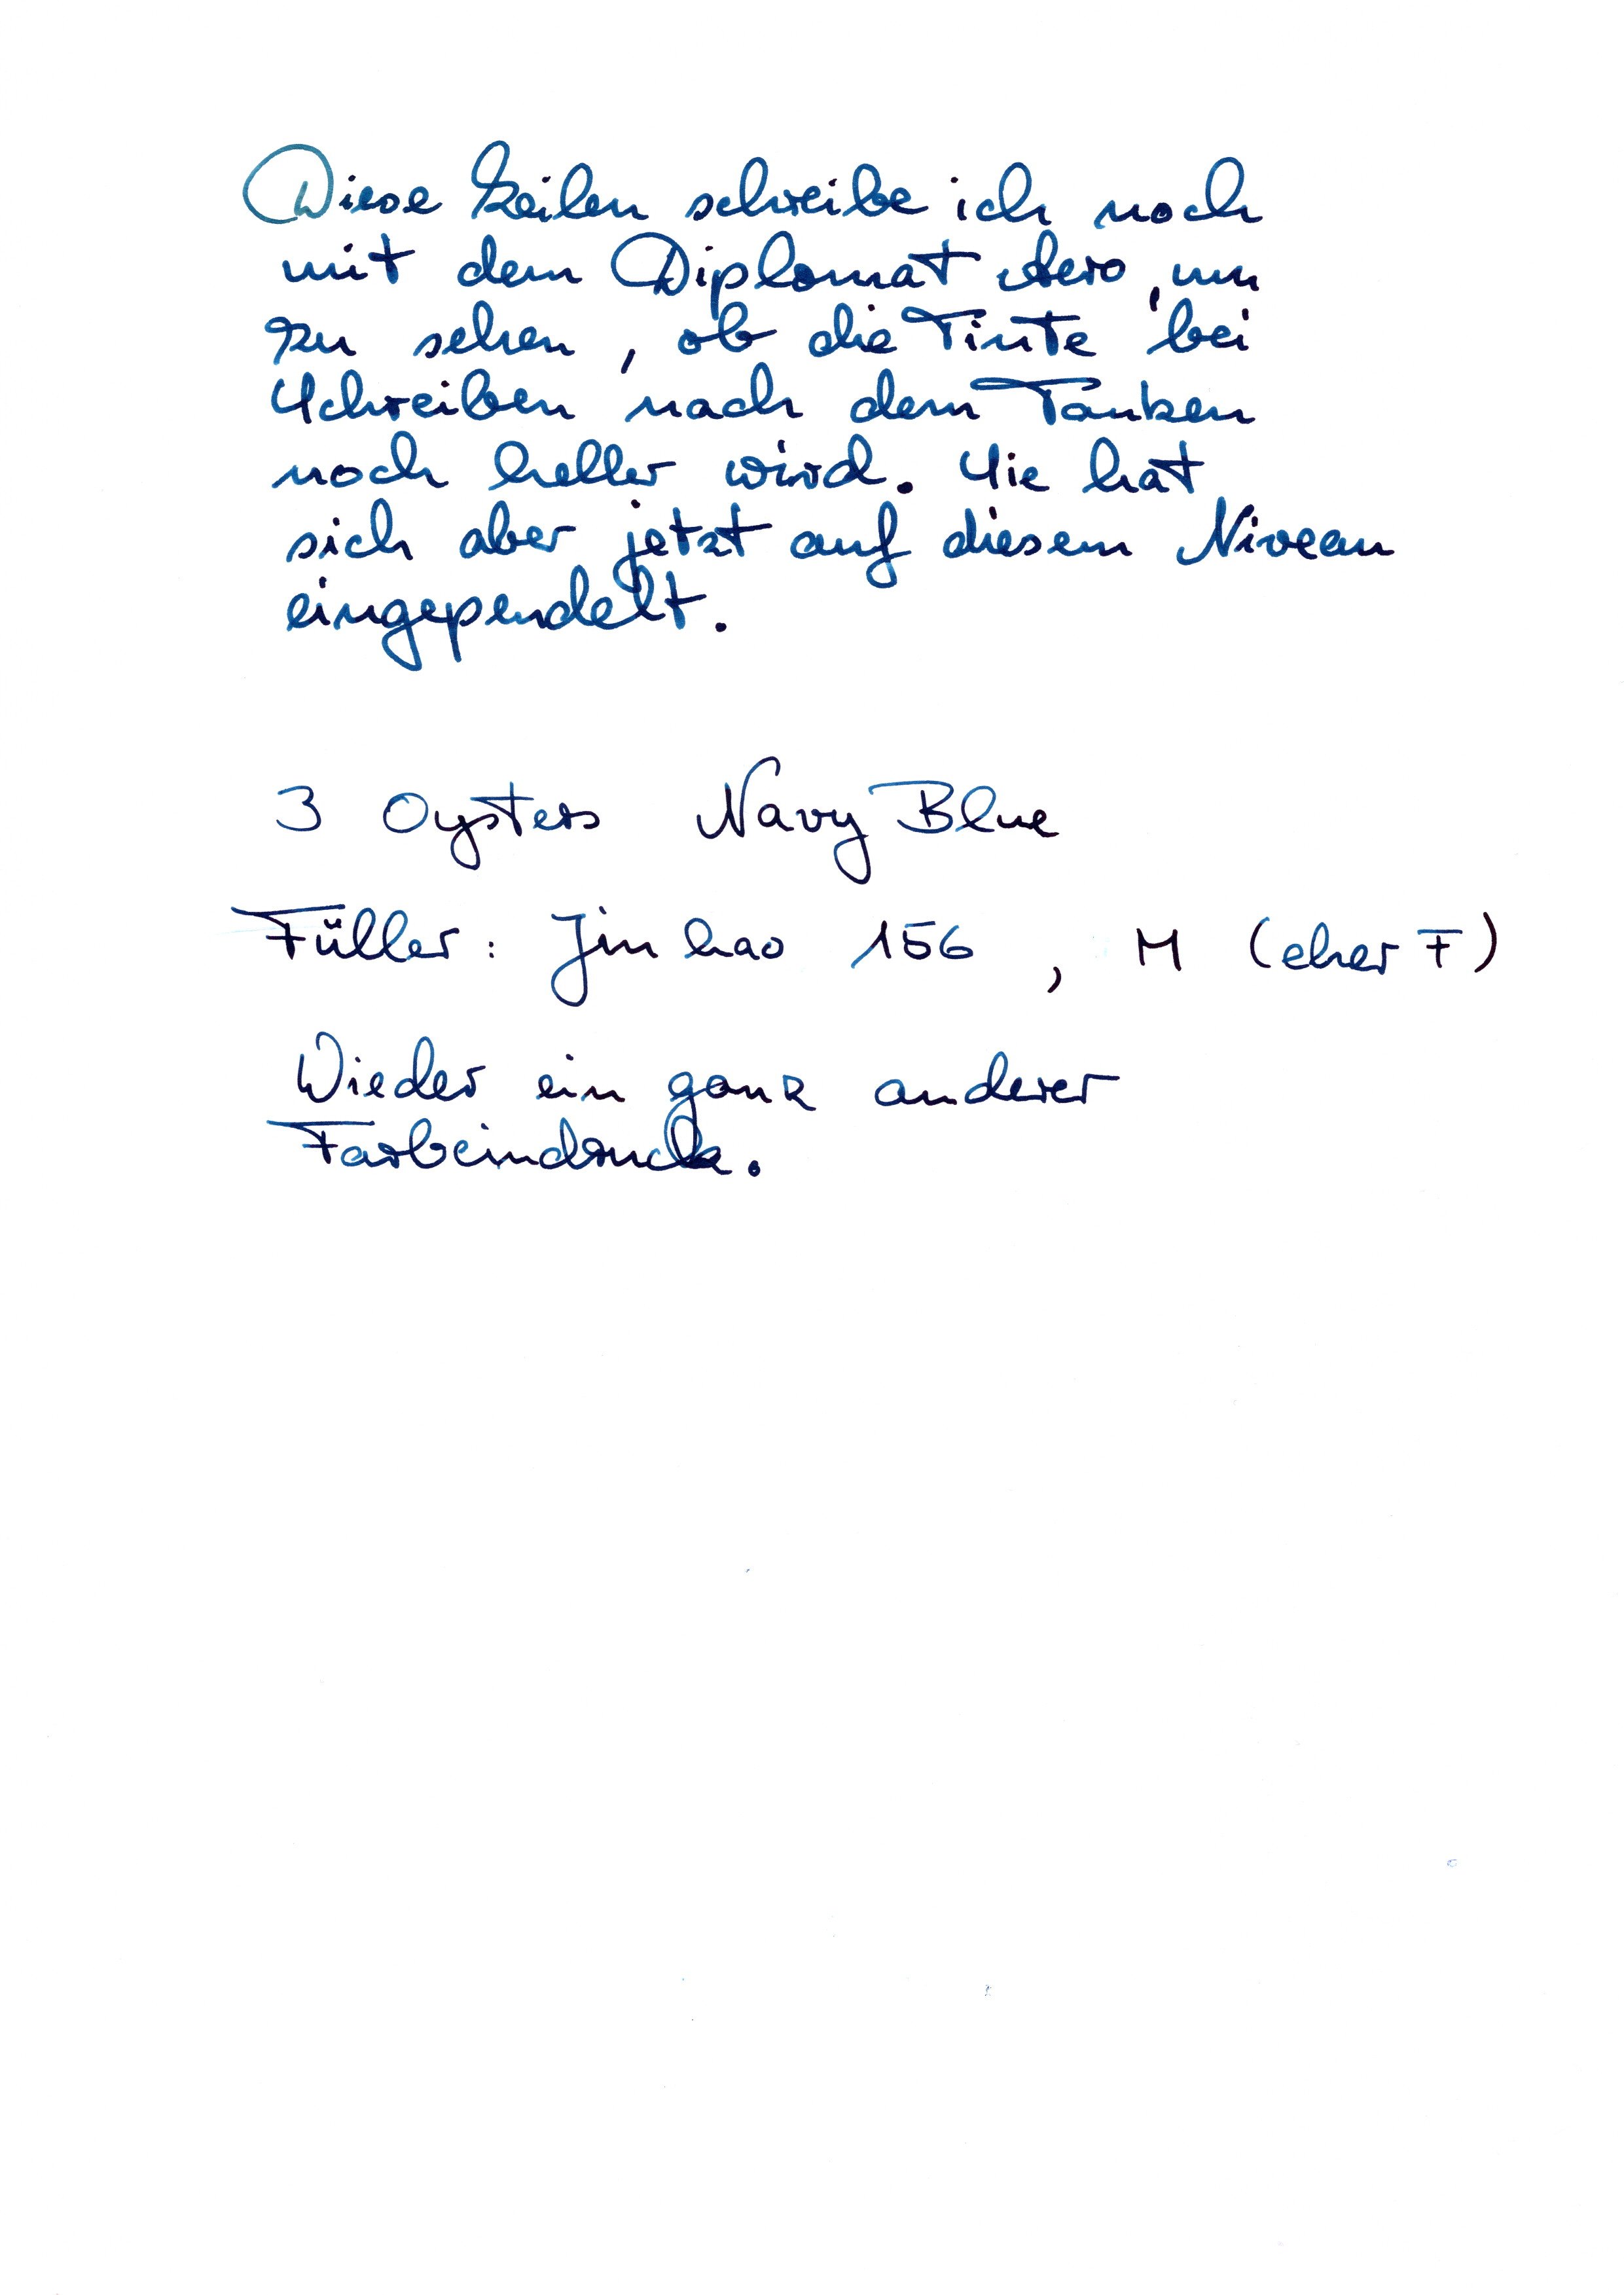 Diese Zeilen schreibe ich noch
mit dem Diplomat Aero, um
zu sehen, ob die Tinte bei
Schreiben nach dem Tanken
noch heller wird. Sie hat
sich aber jetzt auf diesem Niveau
eingependelt.
3 Oysters Navy Blue
Füller: Jinhao 156, M (eher F)
Wieder ein ganz anderer
Farbeindruck.